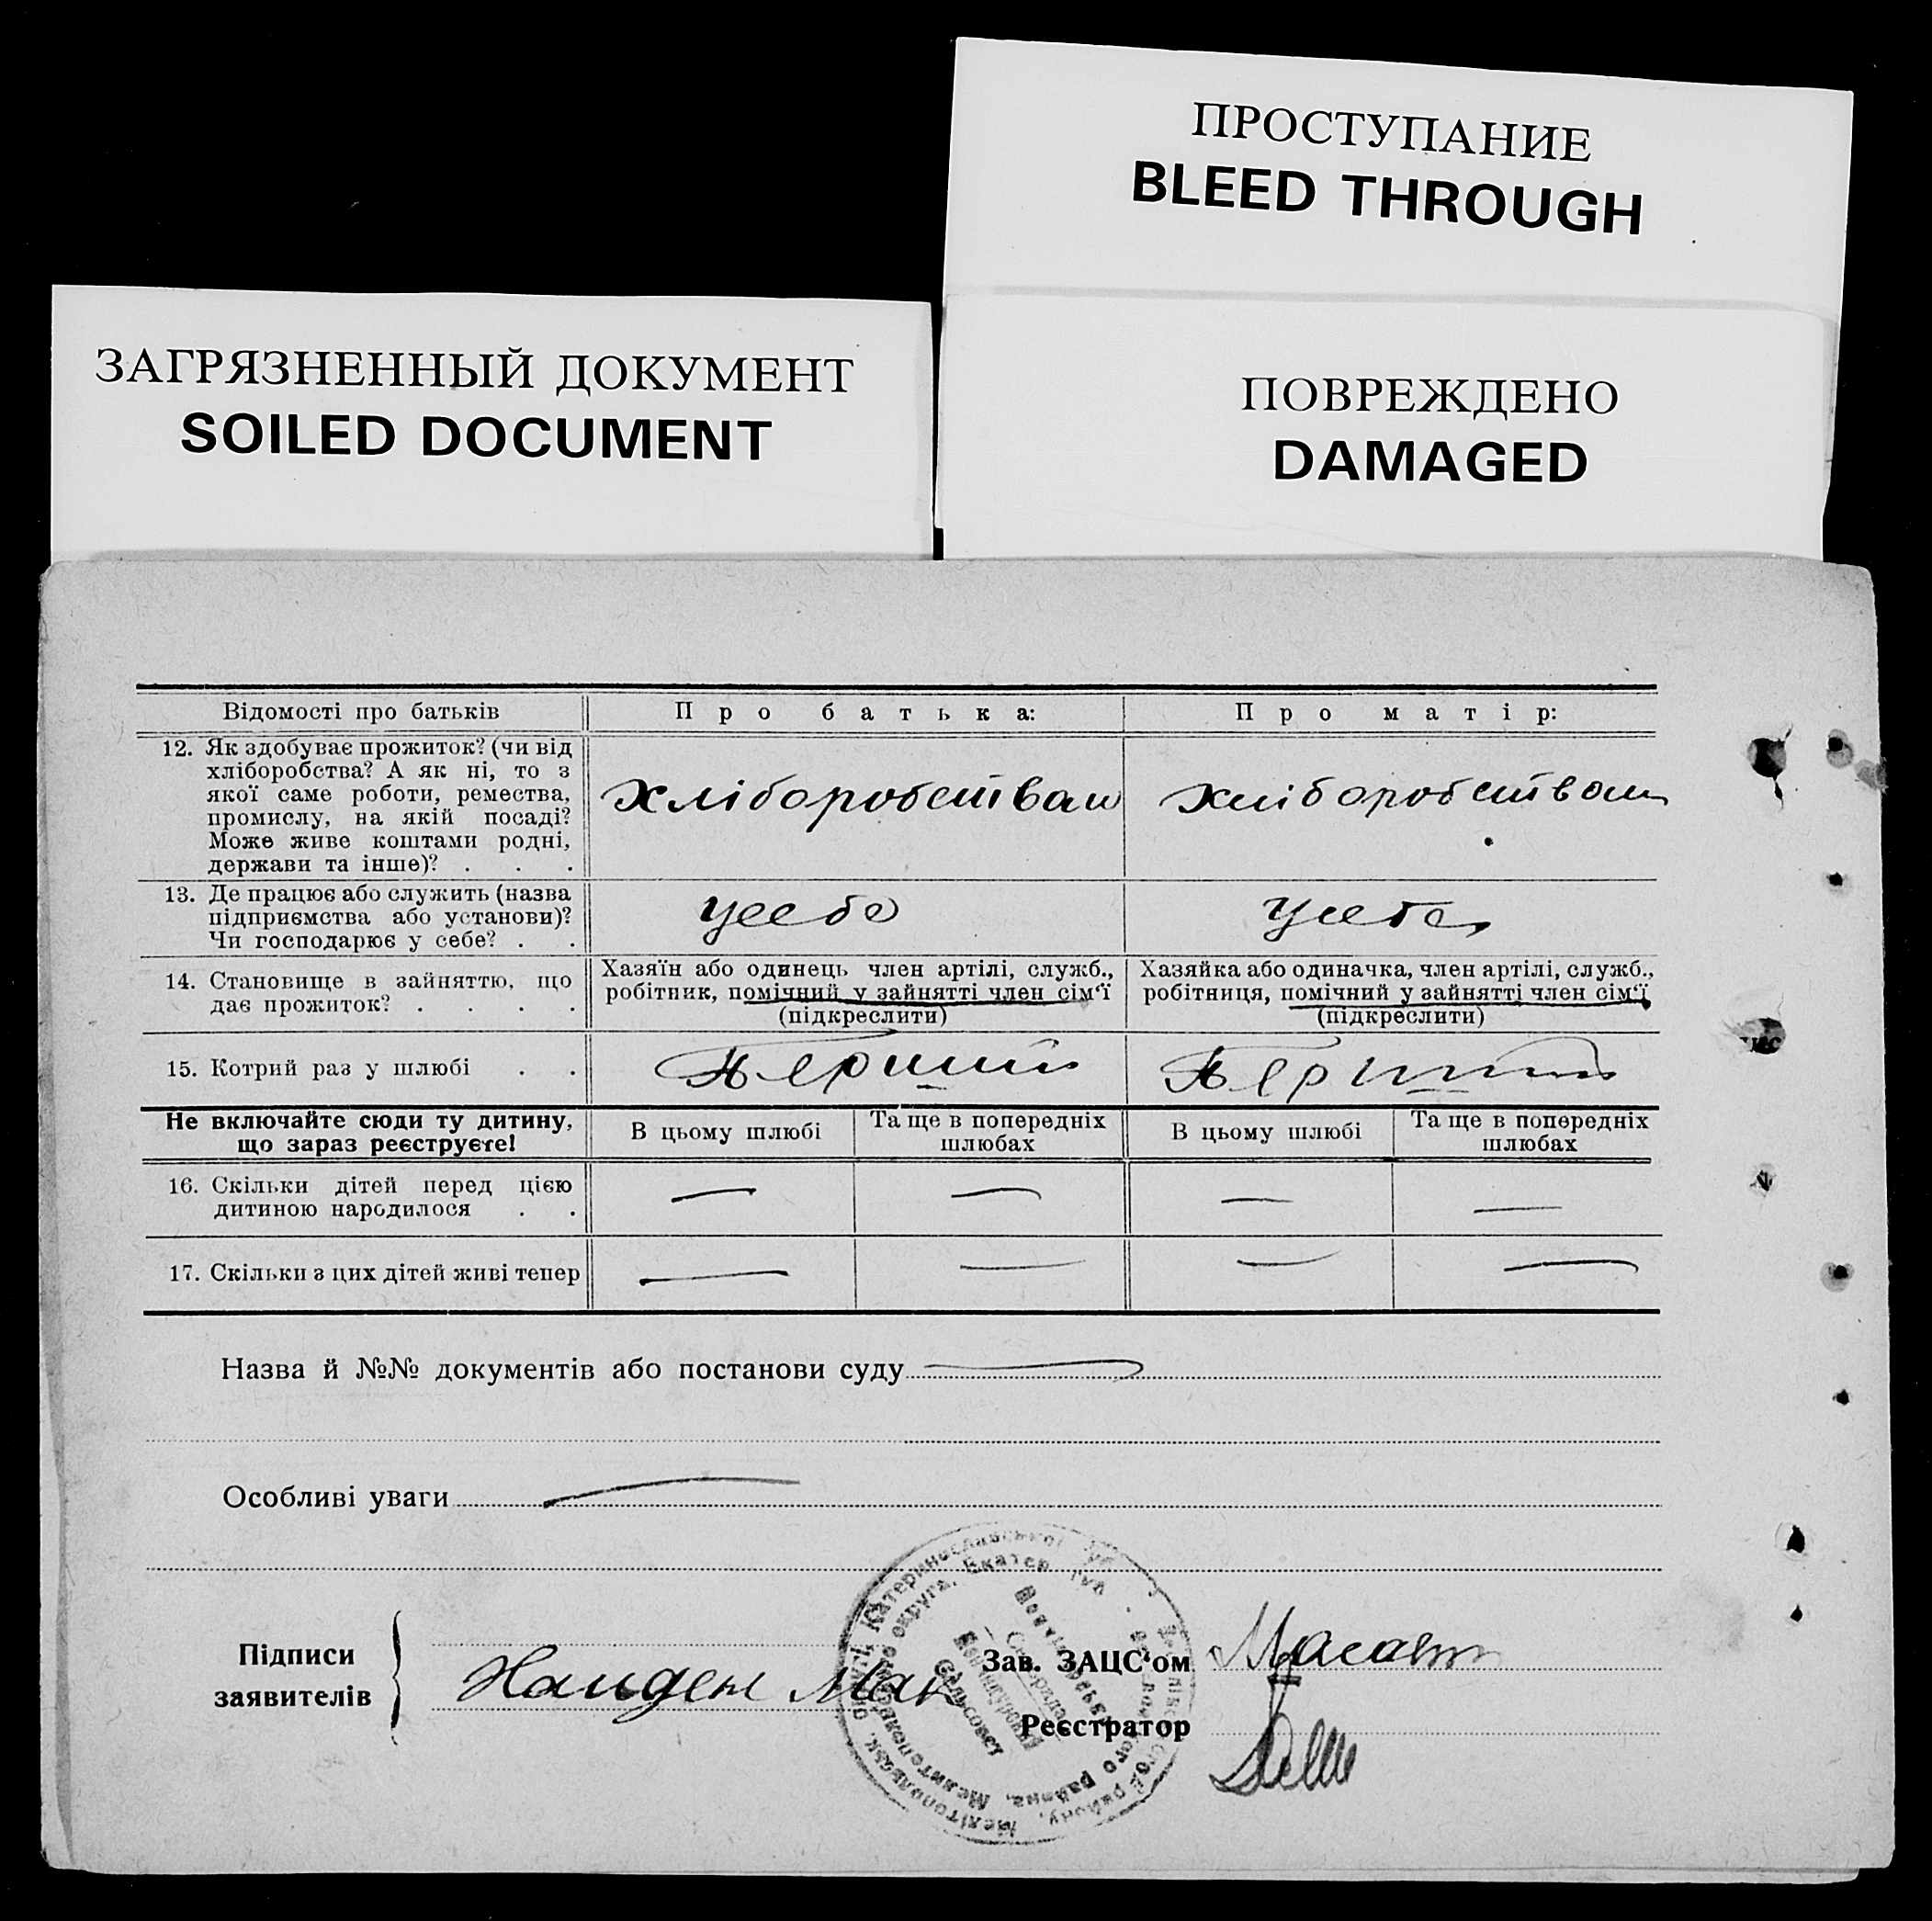 ПРОСТУПАНИЕ
BLEED THROUGH
ЗАГРЯЗНЕННЫЙ ДОКУМЕНТ
SOILED DOCUMENT
ПОВРЕЖДЕНО
DAMAGED
Відомості про батьків Про батька: Про матір:
12. Як здобуває прожиток? (чи від
хліборобства? А як ні, то з
якої саме роботи, ремества,
промислу, на якій посаді?
Може живе коштами родні,
держави та інше)? . . .
хліборобством хліборобством
13. Де працює або служить (назва
підприємства або установи)?
Чи господарює у себе? . .
у себе у себе
14. Становище в зайняттю, що
дає прожиток? . . . .
Хазяїн або одинець член артілі, служб.,
робітник, помічний у зайнятті член сім'ї
(підкреслити)
Хазяйка або одиначка, член артілі, служб.,
робітниця, помічний у зайнятті член сім'ї
(підкреслити)
15. Котрий раз у шлюбі . . Перший Перший
Не включайте сюди ту дитину,
що зараз реєструєте!
В цьому шлюбі Та ще в попередніх
шлюбах
В цьому шлюбі Та ще в попередніх
шлюбах
16. Скільки дітей перед цією
дитиною народилося . . — — — —
17. Скільки з цих дітей живі тепер — — — —
Назва й №№ документів або постанови суду —
Особливі уваги —
Підписи
заявителів
Найден
Зав. ЗАЦС'ом
Реєстратор